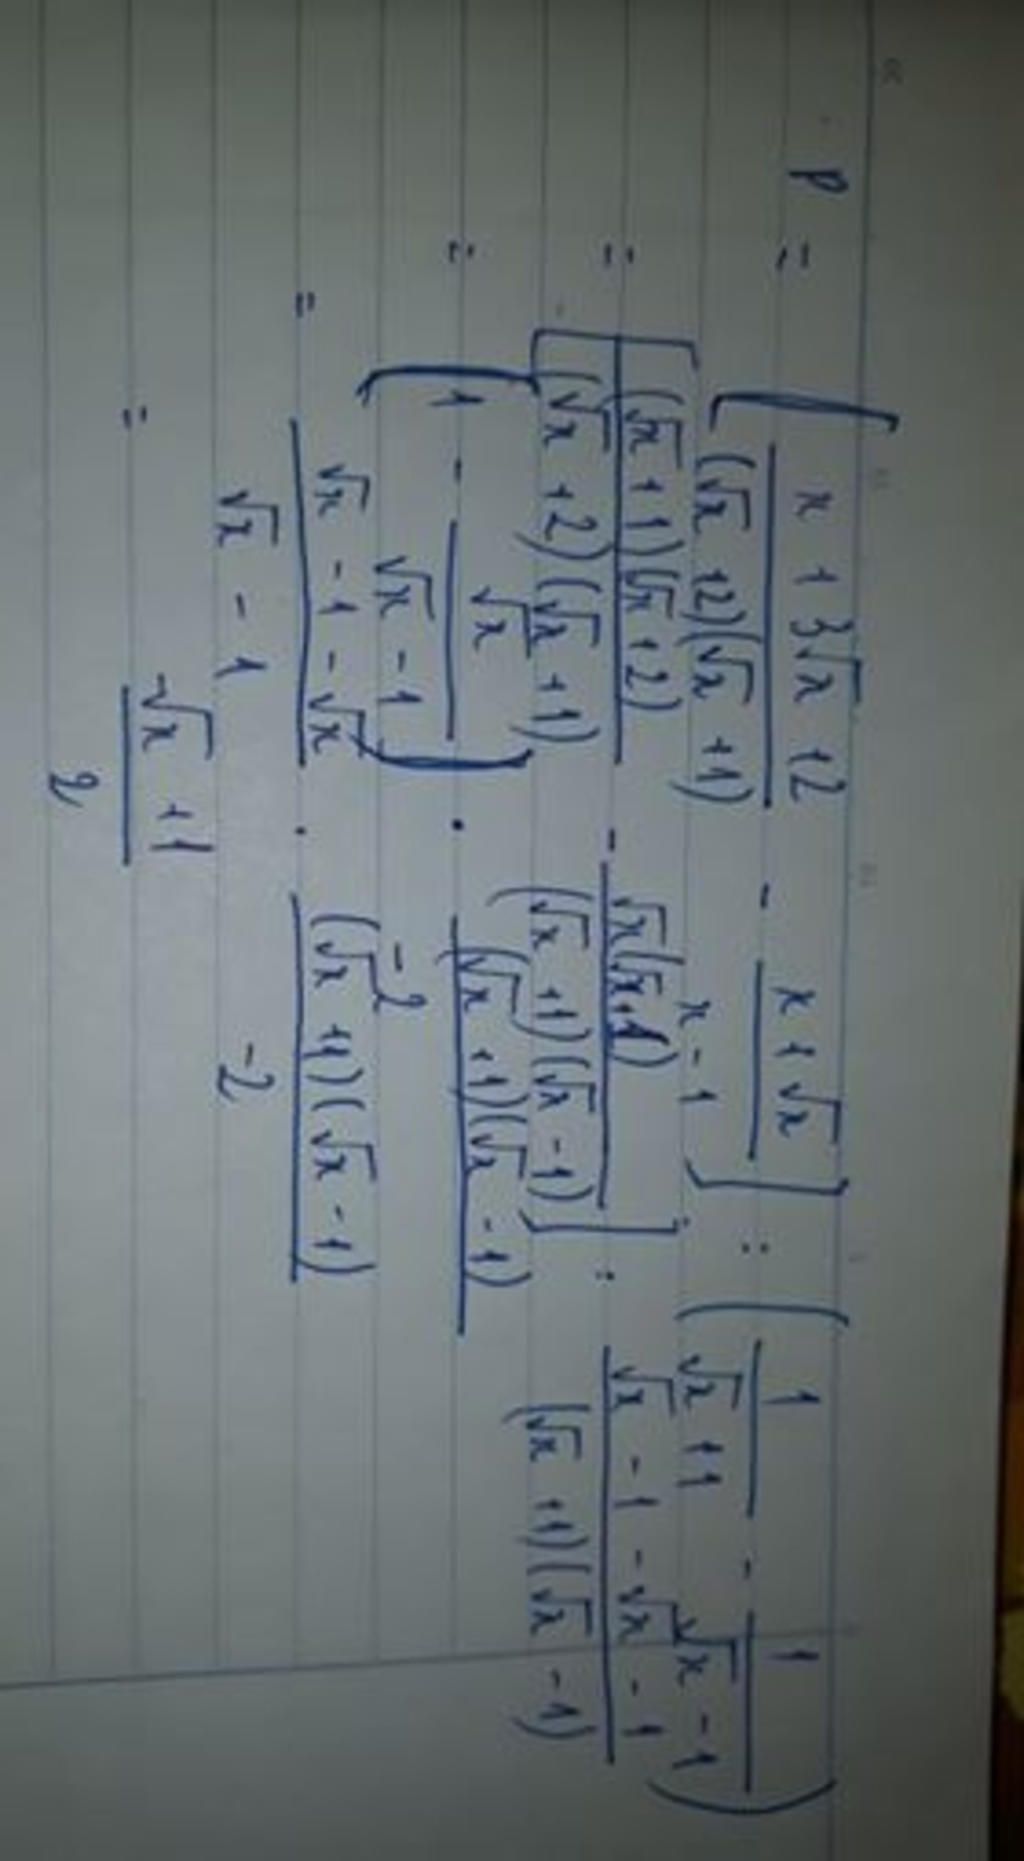 P = [ (x + 3√x + 2)/((√x + 2)(√x + 1)) - (x + √x)/(x - 1) ] : ( 1/(√x + 1) - 1/(√x - 1) )
= [ ((√x + 1)(√x + 2))/((√x + 2)(√x + 1)) - (√x(√x + 1))/((√x + 1)(√x - 1)) ] : (√x - 1 - √x - 1)/((√x + 1)(√x - 1))
= [ 1 - √x/(√x - 1) ] . ((√x + 1)(√x - 1))/(-2)
= (√x - 1 - √x)/(√x - 1) . ((√x + 1)(√x - 1))/(-2)
= (√x + 1)/2